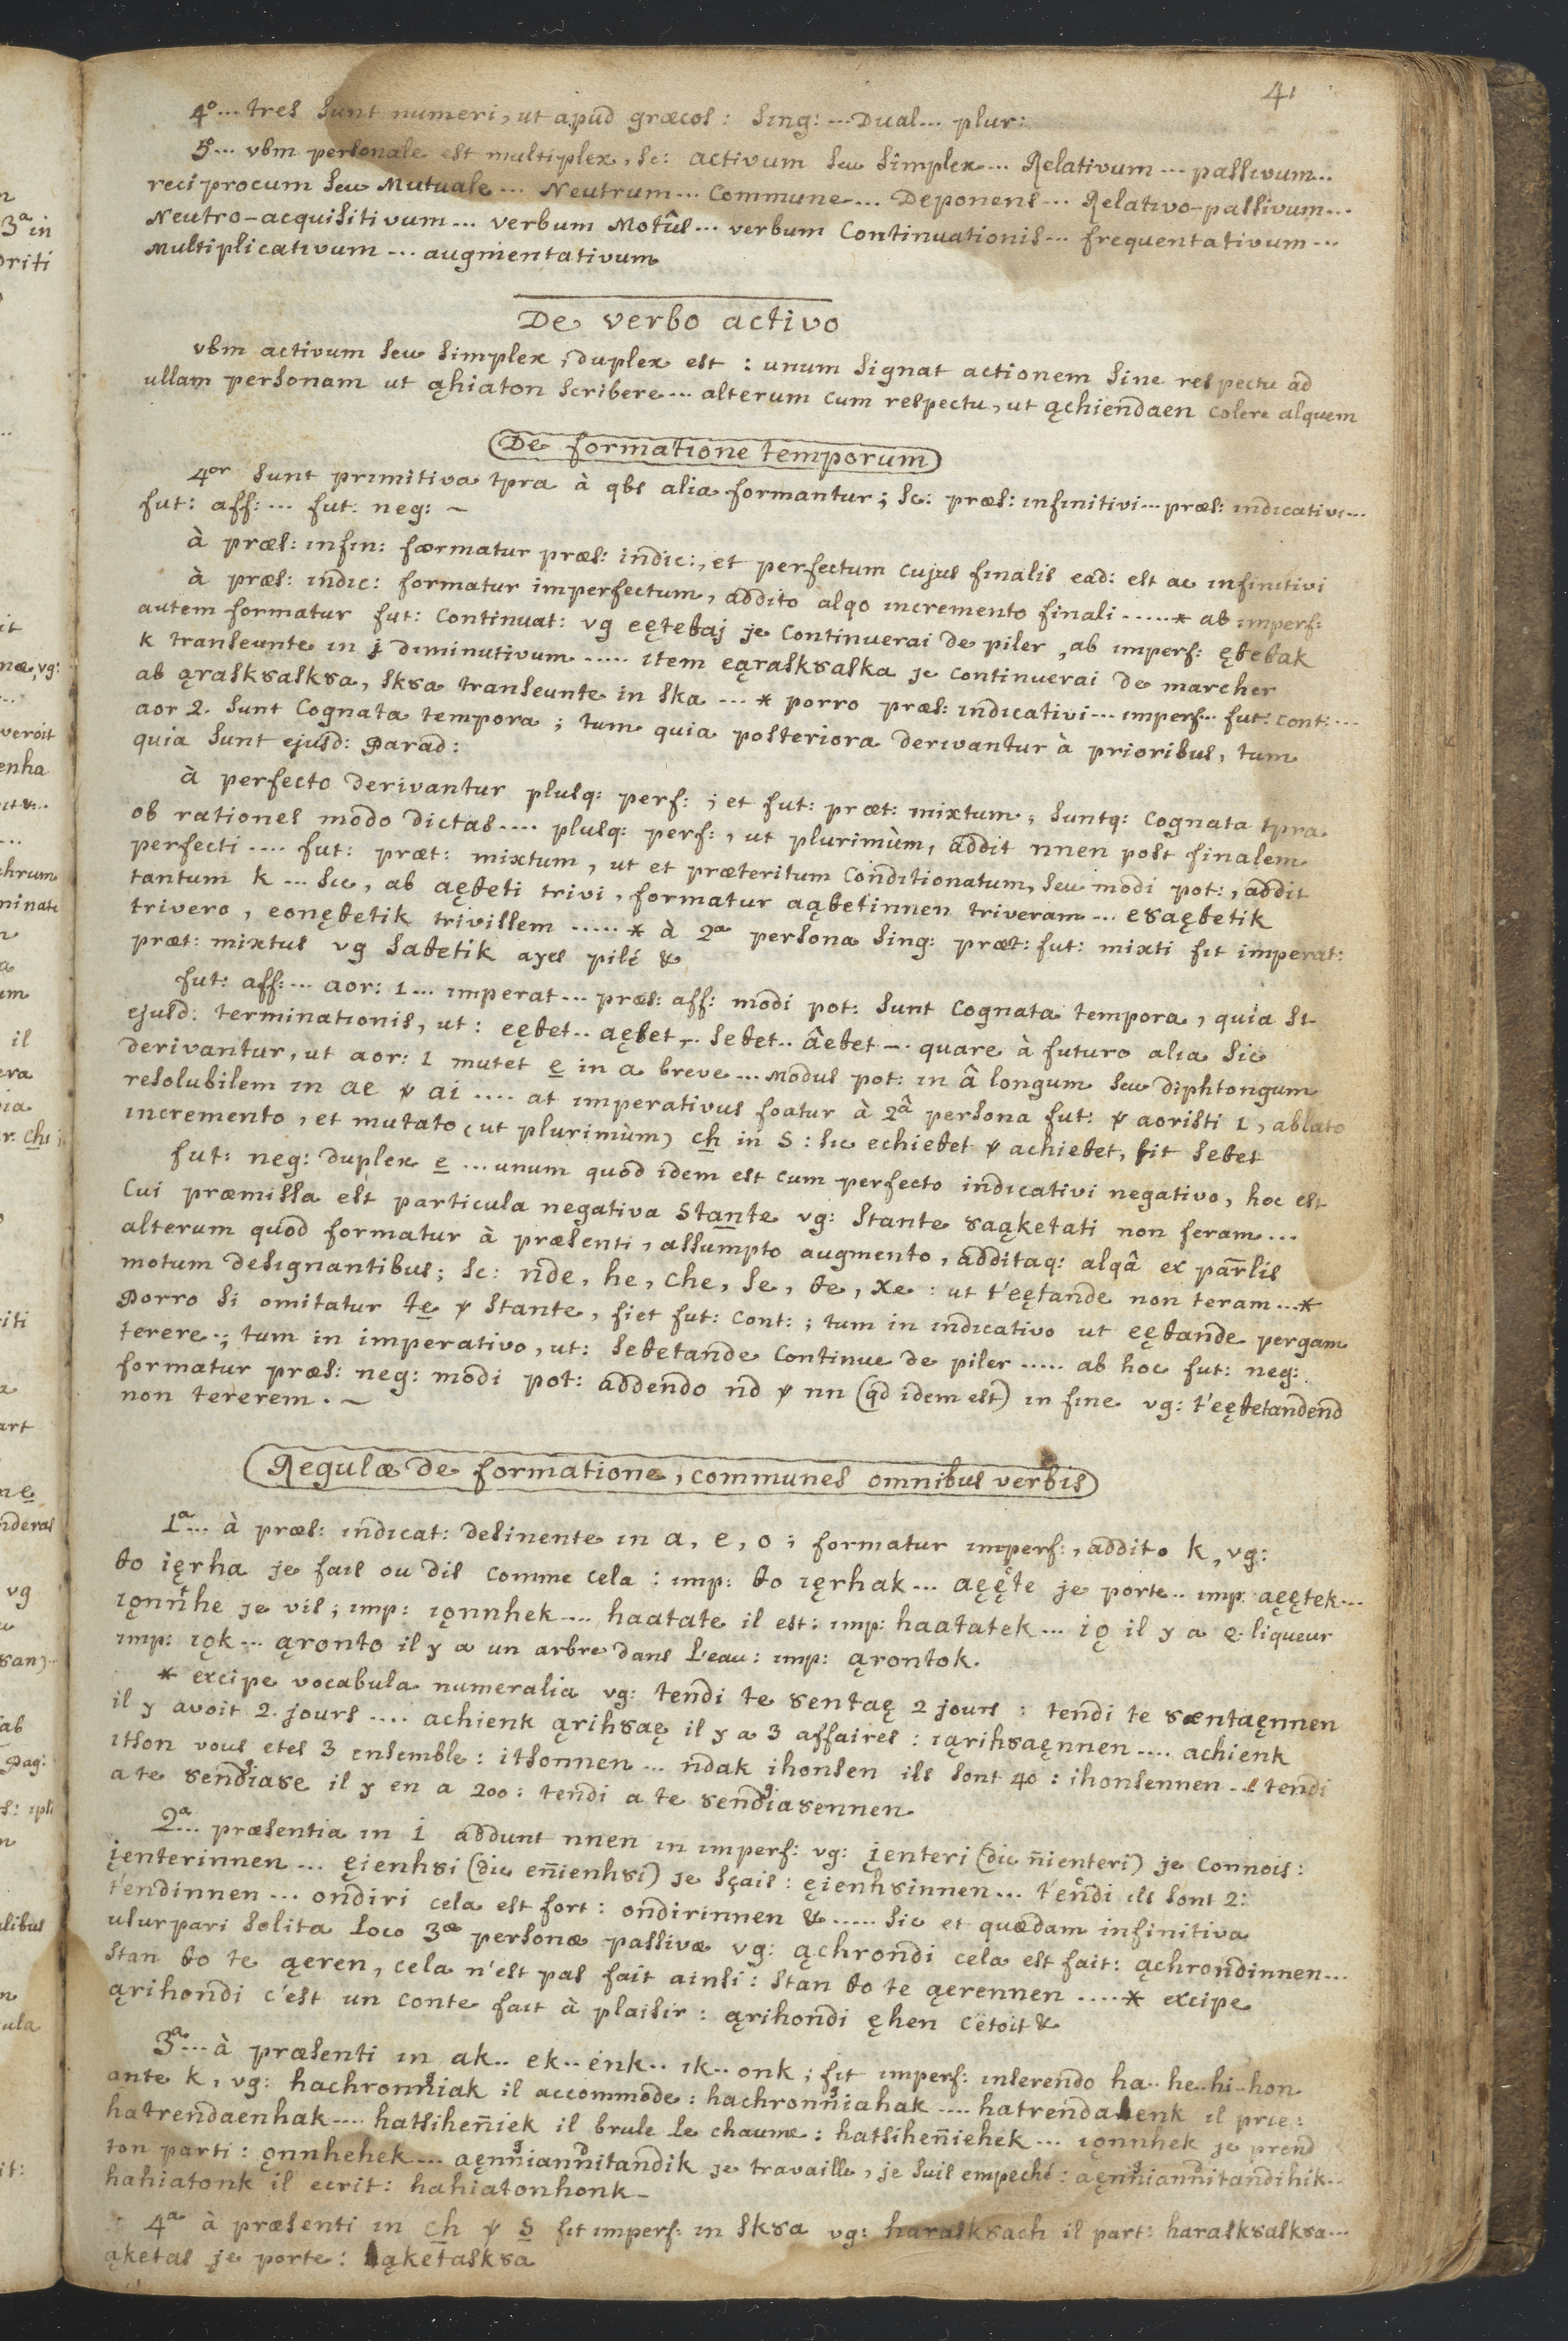 41
4º... tres sunt numeri, ut apud græcos: sing: ... Dual... plur:
5º... vbm personale est multiplex, sc: activum seu simplex... Relativum ... passivum...
reciprocum seu Mutuale... Neutrum... Commune... Deponens... Relativo-passivum...
Neutro-acquisitivum... verbum Motûs... verbum Continuationis... frequentativum...
Multiplicativum... augmentativum
De verbo activo
vbm activum seu simplex, duplex est: unum signat actionem sine respectu ad
ullam personam ut ąhiaton scribere... alterum cum respectu, ut ąchiendaen colere alquem
De formatione temporum
4or sunt primitiva tpra à qbs alia formantur; sc: præs: infinitivi... præs: indicativi...
fut: aff: ... fut: neg: ~
à præs: infin: formatur præs: indic:, et perfectum cujus finalis ead: est ac infinitivi
à præs: indic: formatur imperfectum, addito alqo incremento finali ..... * ab imperf:
autem formatur fut: continuat: vg eęteꝋaj je continuerai de piler, ab imperf: ęꝋeꝋak
k transeunte in j diminutivum ..... item eąrasksaska je continuerai de marcher
ab ąraskȣaskȣa, skȣa transeunte in ska ... * porro præs: indicativi... imperf... fut: cont: ...
aor 2. sunt cognata tempora; tum quia posteriora derivantur à prioribus, tum
quia sunt ejusd: parad:
à perfecto derivantur plusq: perf: ; et fut: præt: mixtum; suntq: cognata tpra
ob rationes modo dictas .... plusq: perf:, ut plurimùm, addit nnen post finalem
perfecti .... fut: præt: mixtum, ut et præteritum conditionatum, seu modi pot:, addit
tantum k ... sic, ab aęꝋeti trivi, formatur aąꝋetinnen triveram ... eȣaęꝋetik
trivero, eonęꝋetik trivissem ..... * à 2a persona sing: præt: fut: mixti fit imperat:
præt: mixtus vg saꝋetik ayes pilé &
fut: aff: ... aor: 1 ... imperat ... præs: aff: modi pot: sunt cognata tempora, quia st
ejusd: terminationis, ut: eęꝋet.. aęꝋet.. seꝋet.. âeꝋet ... quare à futuro alia sic
derivantur, ut aor: 1 mutet e in a breve ... Modus pot: in â longum seu diphtongum
resolubilem in ae v ai .... at imperativus foatur à 2â persona fut: v aoristi 1, ablato
incremento, et mutato (ut plurimùm) ch in s: sic echieꝋet v achieꝋet, fit seꝋet
fut: neg: duplex e ... unum quod idem est cum perfecto indicativi negativo, hoc est
cui præmissa est particula negativa stante vg: stante ȣaąketati non feram ...
alterum quod formatur à præsenti, assumpto augmento, additaq: alqâ ex parlis
motum designantibus; sc: nde, he, che, se, ꝋe, xe: ut t'eętande non teram ... *
Porro si omitatur te v stante, fiet fut: cont: ; tum in indicativo ut eęꝋande pergam
terere; tum in imperativo, ut: seꝋetande continue de piler ..... ab hoc fut: neg:
formatur præs: neg: modi pot: addendo nd v nn (qd idem est) in fine vg: t'eęꝋetandend
non tererem. ~
Regulæ de formatione, communes omnibus verbis
1a... à præs: indicat: desinente in a, e, o; formatur imperf:, addito k, vg:
ꝋo ięrha je fais ou dis comme cela: imp: ꝋo ięrhak ... aęęte je porte.. imp: aęętek...
ıǫnnhe je vis; imp: ıǫnnhek .... haatate il est: imp: haatatek ... iǫ il y a q. liqueur
imp: ıǫk ... ąronto il y a un arbre dans l'eau: imp: ąrontok.
* excipe vocabula numeralia vg: tendi te ȣentaę 2 jours: tendi te ȣentaęnnen
il y avoit 2. jours .... achienk ąrihȣaę il y a 3 affaires: ıąrihȣaęnnen .... achienk
itson vous etes 3 ensemble: itsonnen ... ndak ihonsen ils sont 40: ihonsennen ... tendi
a te ȣendiaȣe il y en a 200: tendi a te ȣendiaȣennen
2a... præsentia in i addunt nnen in imperf: vg: įenteri (dic ñienteri) je connois:
įenterinnen ... ęienhȣi (dic eñienhȣi) je sçais: ęienhȣinnen ... t'endi ils sont 2:
t'endinnen ... ondiri cela est fort: ondirinnen & ..... sic et quædam infinitiva
usurpari solita loco 3æ personæ passivæ vg: ąchrondi cela est fait: ąchrondinnen...
stan ꝋo te ąeren, cela n'est pas fait ainsi: stan ꝋo te ąerennen .... * excipe
ąrihondi c'est un conte fait à plaisir: ąrihondi ęhen cëtoit &
3a... à præsenti in ak.. ek.. enk.. ik.. onk; fit imperf: inserendo ha.. he.. hi.. hon
ante k, vg: hachronniak il accommode: hachronniahak .... hatrendaenk il prie:
hatrendaenhak .... hatsiheñiek il brule le chaume: hatsiheñiehek ... ıǫnnhek je prend
ton parti: ǫnnhehek ... aęnnianditandik je travaille, je suis empeché: aęnnianditandihik..
hahiatonk il ecrit: hahiatonhonk_
4a à præsenti in ch v s fit imperf: in skȣa vg: haraskȣach il part: haraskȣaskȣa...
ąketas je porte: ąketaskȣa